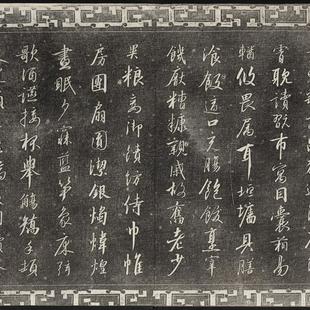 霄耽讀翫市寓目囊箱易
輶攸畏屬耳垣墻具膳
飡飯適口充腸飽飫烹宰
飢厭糟糠親戚故舊老少
異粮妾御績紡侍巾帷
房團扇圓潔銀燭煒煌
晝眠夕寐藍笋象床弦
歌酒讌接杯舉觴矯手頓